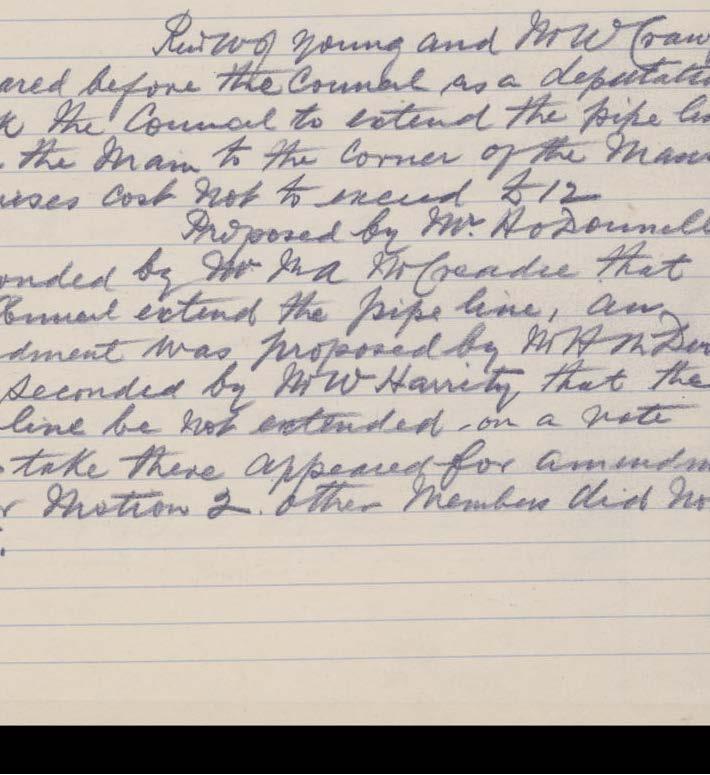 Rev W J Young and Mr W Craw
ared before the Council as a deputatio
k the Council to extend the pipe li
the Main to the Corner of the Mans
ises cost not to exceed £12
Proposed by Mr. H O Donnell
onded by Mr M A McCreadie that
Council extend the pipe line, an
dment was proposed by Mr H McDer
seconded by Mr W Harrity that the
line be not extended - on a vote
take there appeared for amendm
r Motion 2. other Members did no